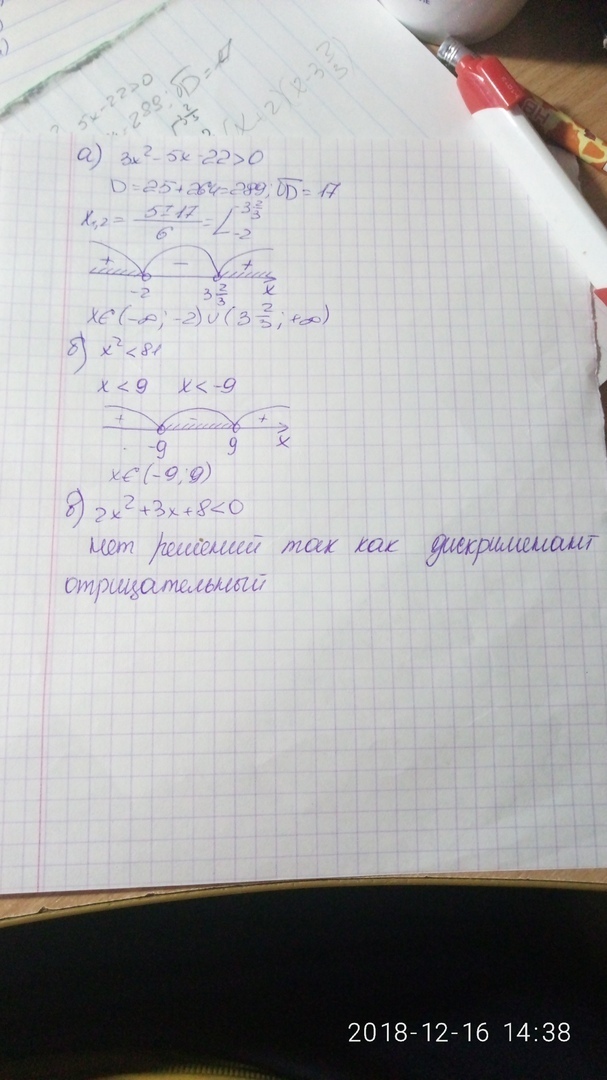 5x-22>0
289; √D=17
(x+2)(x-3 2/3)
а) 3x²-5x-22>0
D=25+264=289; √D=17
x₁,₂= (5±17)/6 = [ 3 2/3
-2
+ - +
-2 3 2/3 x
x∈(-∞; -2)∪(3 2/3; +∞)
б) x²<81
x<9 x<-9
+ - +
-9 9 x
x∈(-9; 9)
в) 2x²+3x+8<0
Нет решений так как дискременант
отрицательный
2018-12-16 14:38